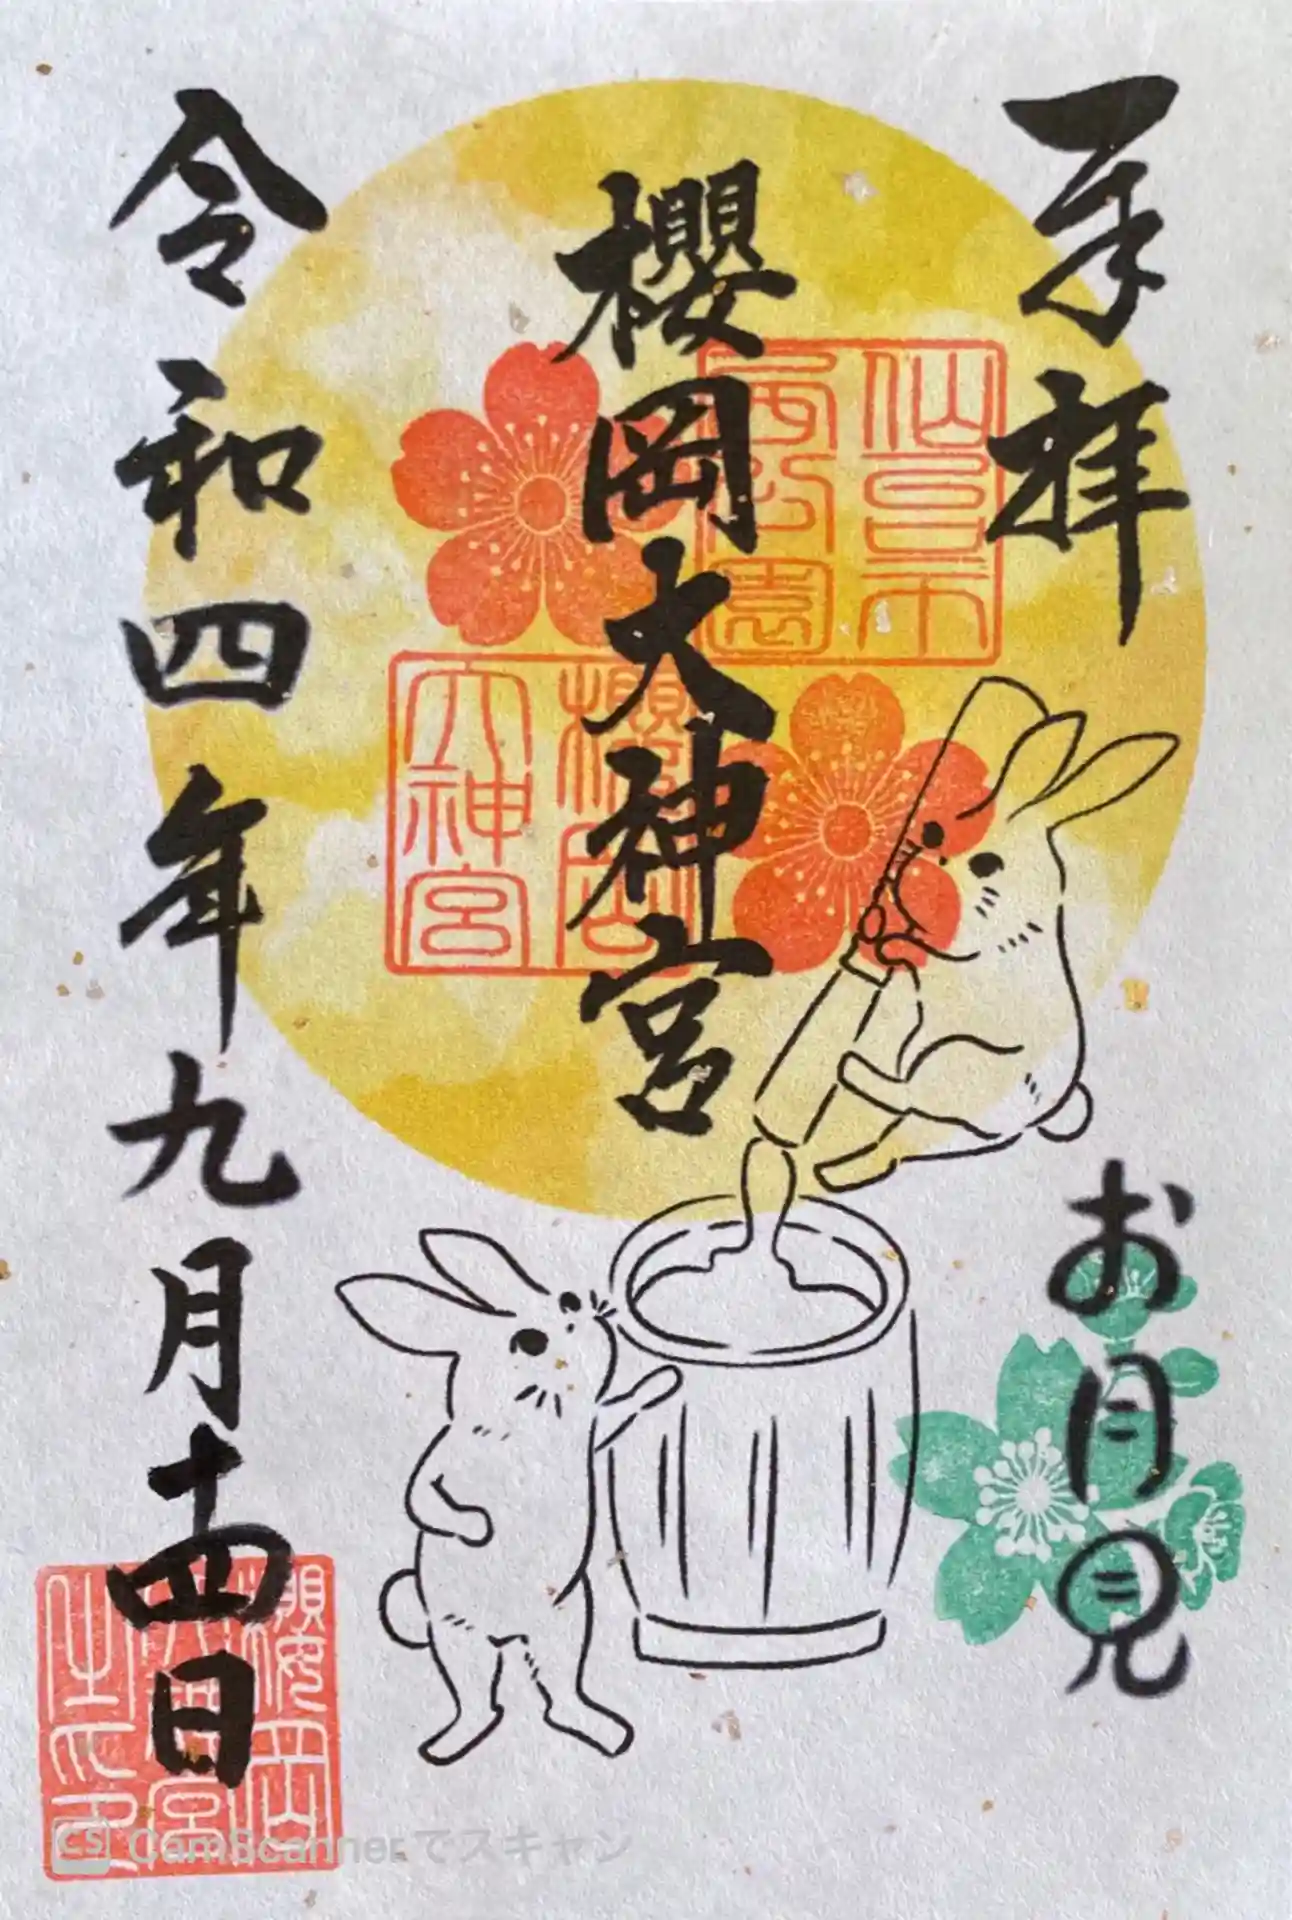 奉拝
お月見
櫻岡大神宮
仙台市
西公園
櫻岡
大神宮
令和四年九月十四日
櫻岡
大神宮
之印
CS CamScannerでスキャン